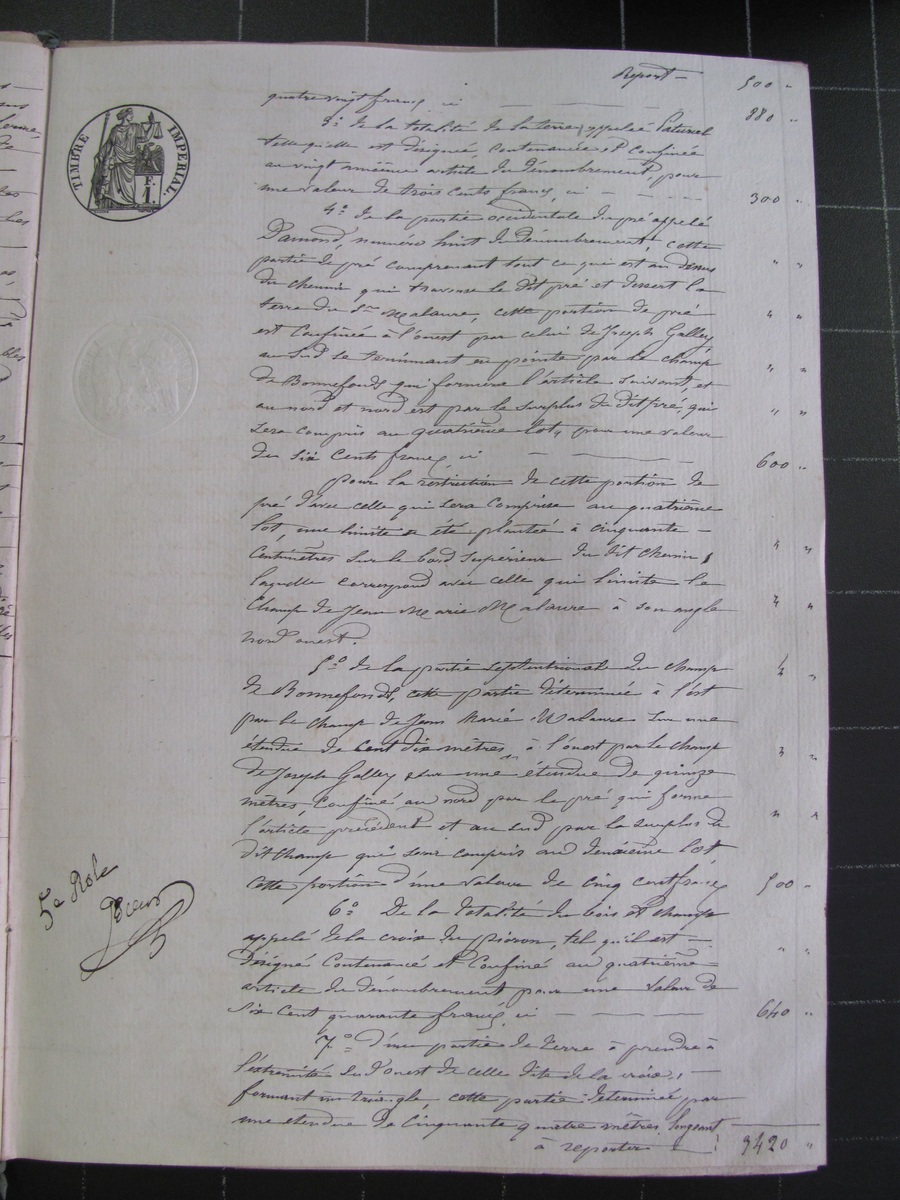 Report — 500 "
quatre vingt francs ci — 880 "
3° De la totalité de la terre appelée
telle qu'elle est désignée, contenancée et confinée
au vingt unième article du dénombrement, pour
une valeur de trois cents francs, ci — 300 "
4° De la partie occidentale du pré appelé
Damond, numéro huit du dénombrement, cette
partie de pré comprenant tout ce qui est au dessus
du chemin qui traverse le dit pré et dessert la
terre du Sr Malaure, cette portion de pré
est confinée à l'ouest par celui de Joseph Galley,
au sud se terminant en pointe par le champ
de Bonnefonds qui formera l'article suivant, et
au nord et nord est par le surplus du dit pré, qui
sera compris au quatrième lot, pour une valeur
de six cents francs ci — 600 "
Pour la restriction de cette portion de
pré d'avec celle qui sera comprise au quatrième
lot, une limite a été plantée à cinquante —
centimètres sur le bord supérieur du dit chemin,
laquelle correspond avec celle qui limite le
champ de Jean Marie Malaure à son angle
nord ouest.
5° De la partie septentrionale du champ
de Bonnefonds, cette partie déterminée à l'est
par le champ de Jean Marie Malaure sur une
étendue de cent dix mètres, à l'ouest par le champ
de Joseph Galley sur une étendue de quinze
mètres, confiné au nord par le pré qui forme
l'article précédent et au sud par le surplus du
dit champ qui sera compris au deuxième lot
cette portion d'une valeur de cinq cent francs 500 "
6° De la totalité du bois et champ
appelé de la croix du pioron, tel qu'il est —
désigné contenancé et confiné au quatrième
article du dénombrement pour une valeur de
six cent quarante francs, ci — 640 "
7° D'une partie de terre à prendre à
l'extrémité sud ouest de celle dite de la croix, —
formant un triangle cette partie déterminée par
une étendue de cinquante quatre mètres longeant
à reporter 3420 "
TIMBRE IMPERIAL
1 F.
5e Role